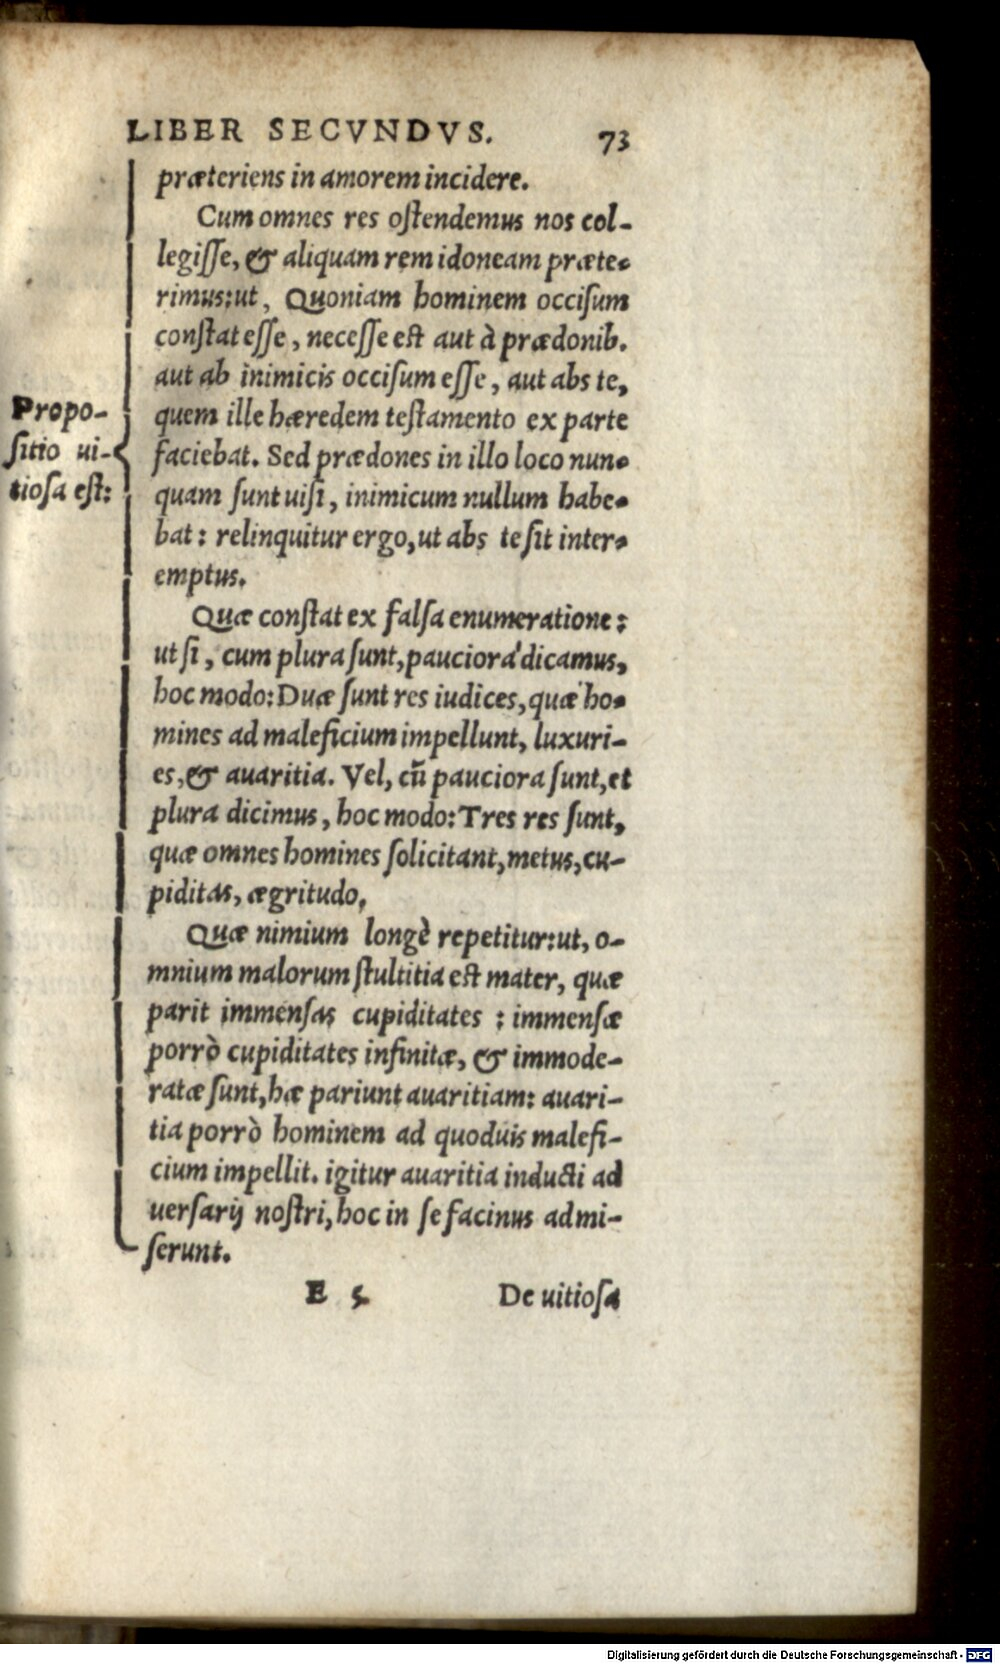 LIBER SECVNDVS. 73
præteriens in amorem incidere.
Cum omnes res ostendemus nos col-
legisse, & aliquam rem idoneam præte-
rimus: ut, Quoniam hominem occisum
constat esse, necesse est aut à prædonib.
aut ab inimicis occisum esse, aut abs te,
quem ille hæredem testamento ex parte
faciebat. Sed prædones in illo loco nun-
quam sunt uisi, inimicum nullum habe-
bat: relinquitur ergo, ut abs te sit inter-
emptus.
Propo-
sitio ui-
tiosa est:
Quæ constat ex falsa enumeratione:
ut si, cum plura sunt, pauciora dicamus,
hoc modo: Duæ sunt res iudices, quæ ho-
mines ad maleficium impellunt, luxuri-
es, & auaritia. Vel, cũ pauciora sunt, et
plura dicimus, hoc modo: Tres res sunt,
quæ omnes homines solicitant, metus, cu-
piditas, ægritudo.
Quæ nimium longè repetitur: ut, o-
mnium malorum stultitia est mater, quæ
parit immensas cupiditates: immensæ
porrò cupiditates infinitæ, & immode-
ratæ sunt, hæ pariunt auaritiam: auari-
tia porrò hominem ad quoduis malefi-
cium impellit. igitur auaritia inducti ad
uersarij nostri, hoc in se facinus admi-
serunt.
E 5 De uitiosa
Digitalisierung gefördert durch die Deutsche Forschungsgemeinschaft - DFG